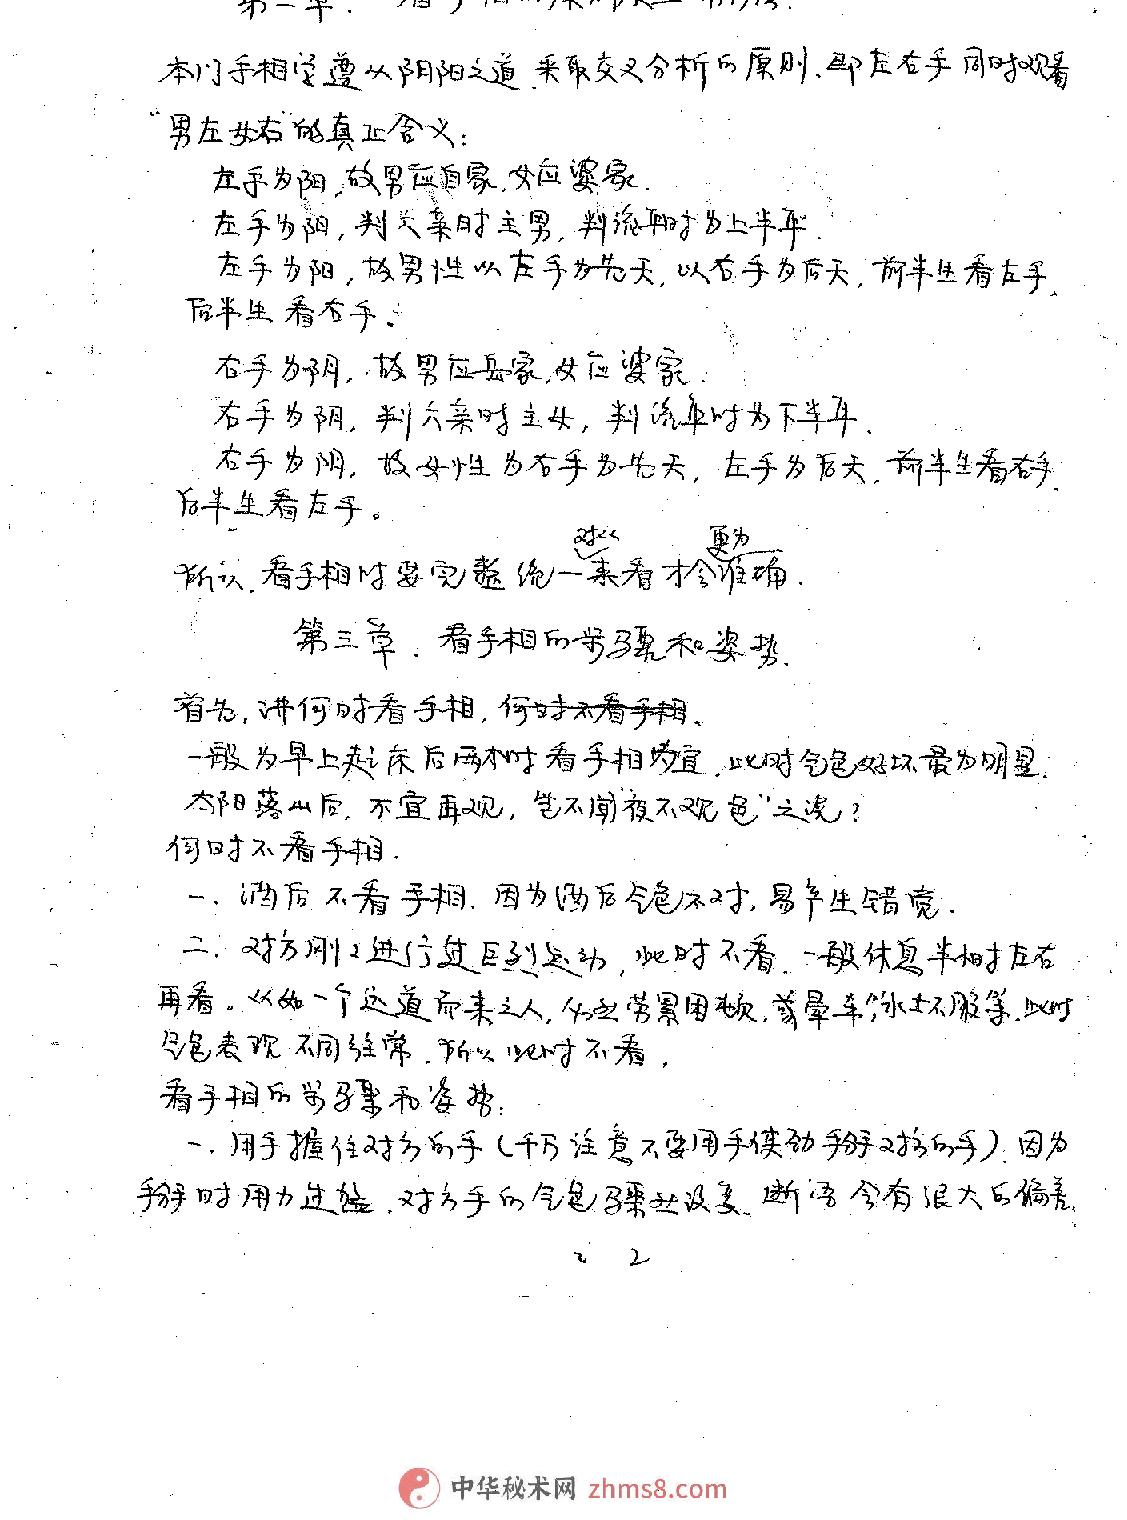 第二章. 看手相的
本门手相学遵从阴阳之道.采取交叉分析的原则.即左右手同时观看
"男左女右"的真正含义:
左手为阳,故男应自家,女应婆家.
左手为阳,判六亲时主男,判流年时为上半年.
左手为阳,故男性以左手为先天,以右手为后天,前半生看左手.
后半生看右手.
右手为阴,故男应岳家,女应婆家.
右手为阴,判六亲时主女,判流年时为下半年.
右手为阴,故女性为右手为先天,左手为后天.前半生看右手.
后半生看左手。
对比 更为
所以.看手相时要完整统一来看才会准确.
第三章.看手相的步骤和姿势.
首先,讲何时看手相,何时不看手相.
一般为早上起床后两小时看手相为宜.此时气色好坏最为明显.
太阳落山后.不宜再观,岂不闻"夜不观色"之说?
何时不看手相.
一.酒后不看手相.因为酒后气色不对,易产生错觉.
二.对方刚刚进行过巨烈运动,此时不看.一般休息半小时左右
再看。从如一个远道而来之人,必劳累困顿,或晕车,水土不服等.此时
气色表现不同经常.所以此时不看.
看手相的步骤和姿势:
一.用手握住对方的手(千万注意不要用手使劲掰对方的手).因为
掰时用力过猛.对方手的气色骤然没变.断语会有很大的偏差.
2 2
中华秘术网 zhms8.com